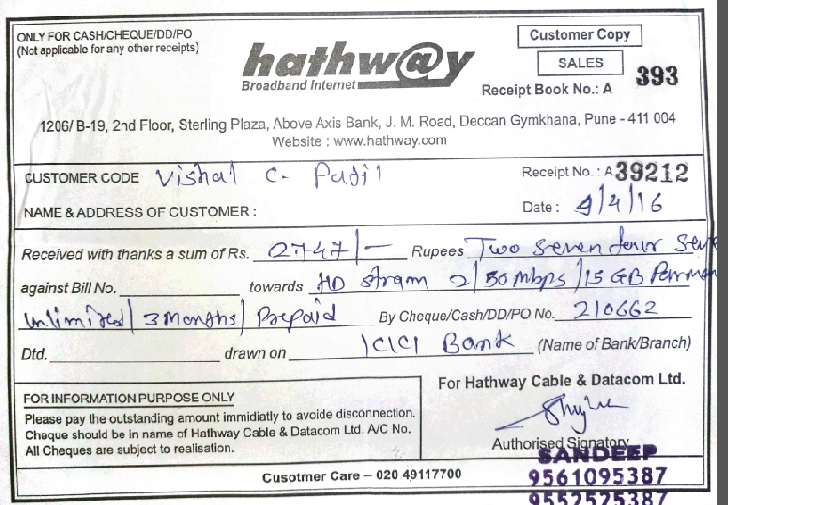 ONLY FOR CASH/CHEQUE/DD/PO
(Not applicable for any other receipts)
hathw@y
Broadband Internet
Customer Copy
SALES
Receipt Book No.: A 393
1206/ B-19, 2nd Floor, Sterling Plaza, Above Axis Bank, J. M. Road, Deccan Gymkhana, Pune - 411 004
Website : www.hathway.com
CUSTOMER CODE Vishal C. Patil
Receipt No. : A 39212
NAME & ADDRESS OF CUSTOMER :
Date : 9/4/16
Received with thanks a sum of Rs. 2747/- Rupees Two Seven four
against Bill No. towards HD Stram 2/50 mbps/15 GB
Unlimited/3 Months/Prepaid By Cheque/Cash/DD/PO No. 210662
Dtd. drawn on ICICI Bank (Name of Bank/Branch)
FOR INFORMATION PURPOSE ONLY
Please pay the outstanding amount immidiatly to avoide disconnection.
Cheque should be in name of Hathway Cable & Datacom Ltd. A/C No.
All Cheques are subject to realisation.
For Hathway Cable & Datacom Ltd.
Authorised Signatory
SANDEEP
Cusotmer Care – 020 49117700
9561095387
9552525387